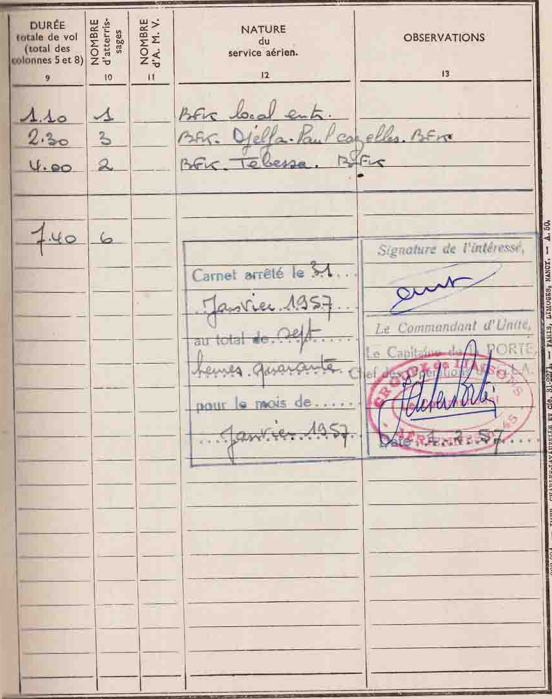 DURÉE totale de vol (total des colonnes 5 et 8) NOMBRE d'atterrissages NOMBRE d'A. M. V. NATURE du service aérien. OBSERVATIONS
9 10 11 12 13
1.10 1 BFK local entr.
2.30 3 BFK. Djelfa. Paul cazelles. BFK
4.00 2 BFK. Tebessa. BFK
7.40 6
Carnet arrêté le 31...
Janvier 1957
au total de sept
heures quarante
pour le mois de.....
Janvier 1957
Signature de l'intéressé,
Le Commandant d'Unité,
Le Capitaine de PORTE
Chef des Opérations
GROUPE de LIAISONS
AÉRIENNES 45
Date 1.2.57